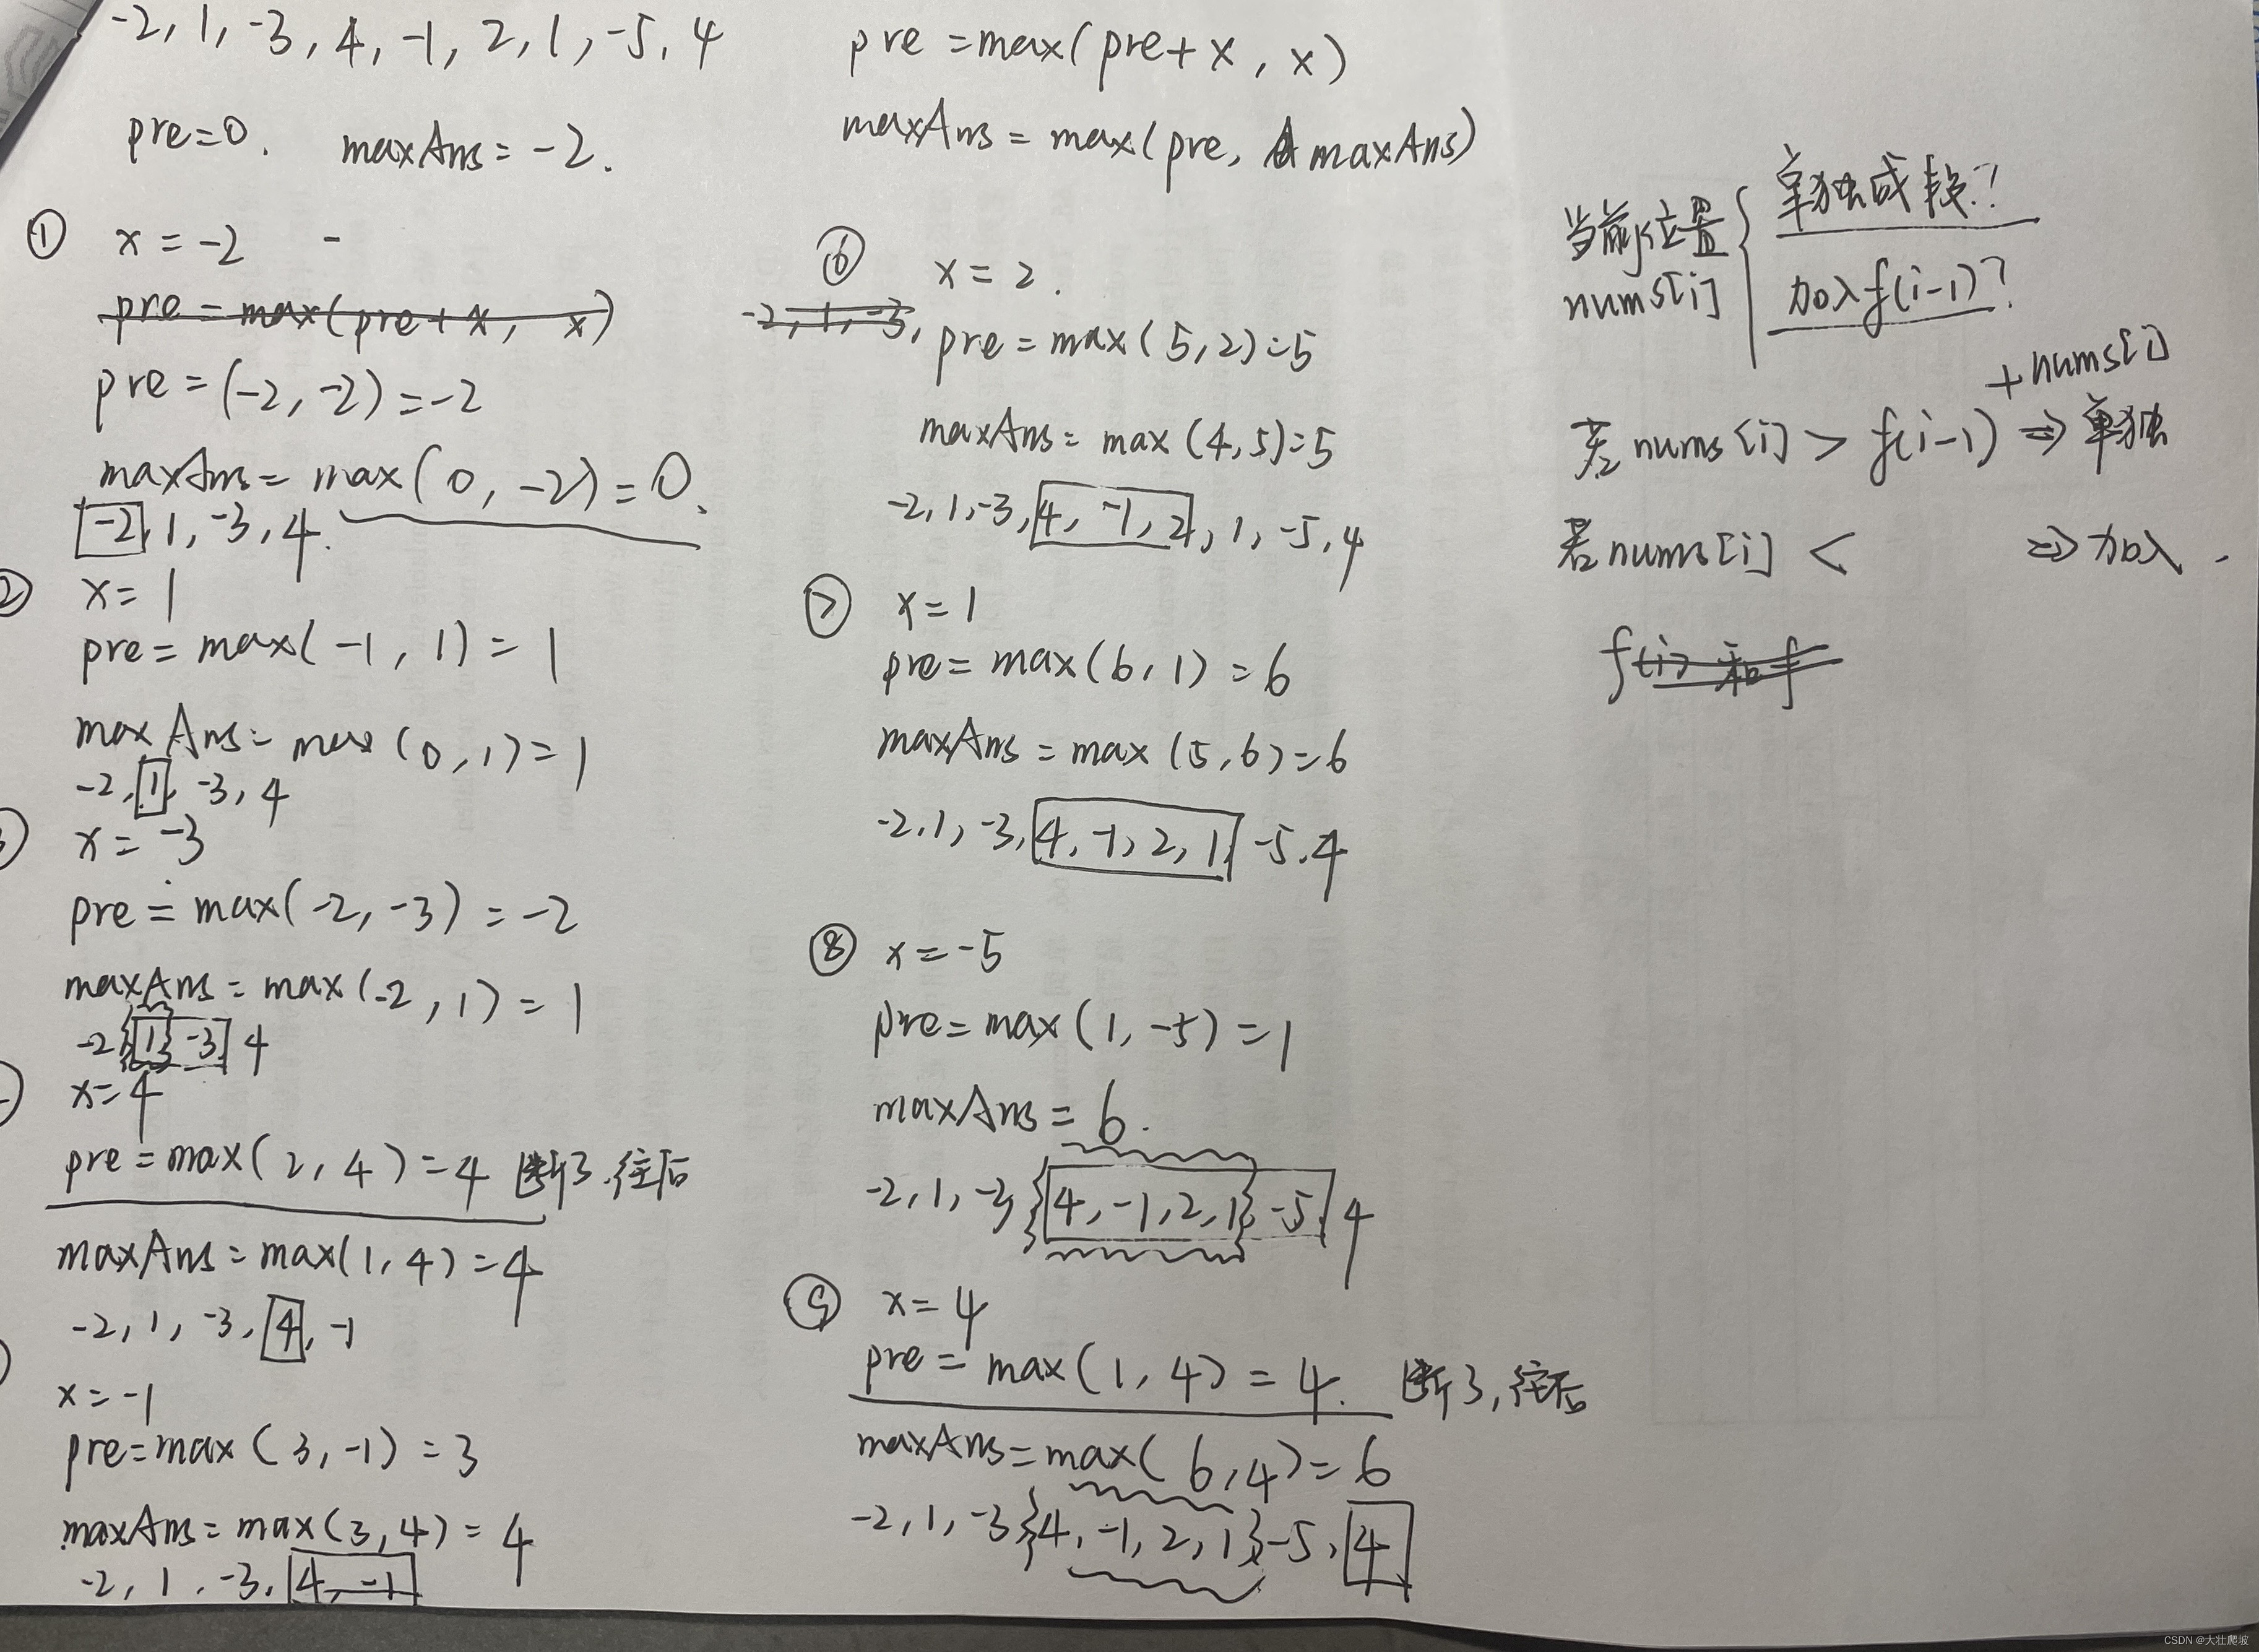 -2, 1, -3, 4, -1, 2, 1, -5, 4
pre=0. maxAns=-2.
① x=-2 -
pre=max(pre+x, x)
pre=(-2,-2)=-2
maxAns=max(0,-2)=0.
-2,1,-3,4.
② x=1
pre=max(-1,1)=1
maxAns=max(0,1)=1
-2,1,-3,4
x=-3
pre=max(-2,-3)=-2
maxAns=max(-2,1)=1
-2{1}-3,4
x=4
pre=max(2,4)=4 断了,往后
maxAns=max(1,4)=4
-2,1,-3,4,-1
x=-1
pre=max(3,-1)=3
maxAns=max(3,4)=4
-2,1,-3,4,-1
pre=max(pre+x, x)
maxAns=max(pre, maxAns)
⑥ x=2.
-2,1,-3,
pre=max(5,2)=5
maxAns=max(4,5)=5
-2,1,-3,4,-1,2,1,-5,4
⑦ x=1
pre=max(6,1)=6
maxAns=max(5,6)=6
-2,1,-3,4,-1,2,1,-5,4
⑧ x=-5
pre=max(1,-5)=1
maxAns=6.
-2,1,-3{4,-1,2,1}-5,4
⑨ x=4
pre=max(1,4)=4. 断了,往后
maxAns=max(6,4)=6
-2,1,-3{4,-1,2,1}-5,4
当前位置 { 单独成段?
nums[i] 加入f(i-1)?
+nums[i]
若nums[i]>f(i-1)⇒单独
若nums[i]< ⇒加入.
f(i)和f
CSDN @大壮爬坡